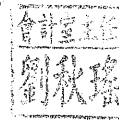 會計室主任
劉秋